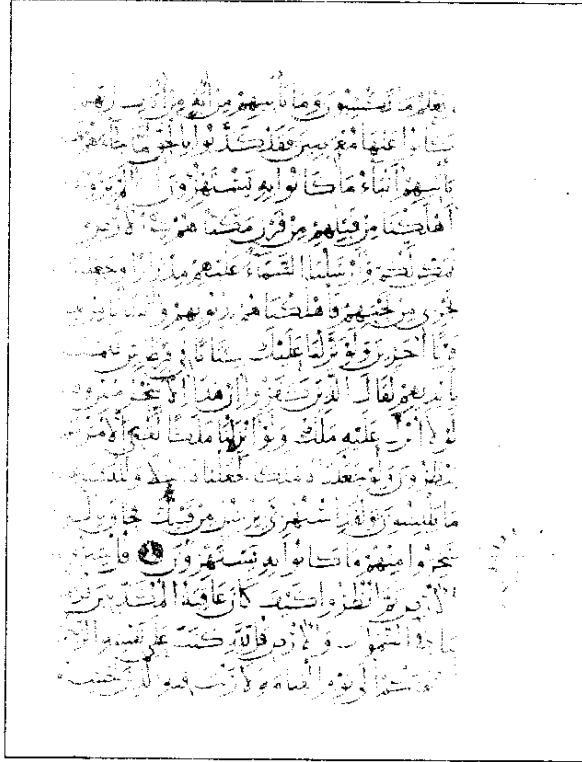 يعلم ما تكسبون وما تأتيهم من آية من آيات ربهم
كانوا عنها معرضين فقد كذبوا بالحق لما جاءهم
يأتيهم أنباء ما كانوا به يستهزون ألم يروا
أهلكنا من قبلهم من قرن مكناهم في الأرض
نمكن لكم وأرسلنا السماء عليهم مدرارا وجعلنا
تجري من تحتهم فأهلكناهم بذنوبهم وأنشأنا
قرنا آخرين ولو نزلنا عليك كتابا في قرطاس
بأيديهم لقال الذين كفروا إن هذا إلا سحر مبين
لولا أنزل عليه ملك ولو أنزلنا ملكا لقضي الأمر ثم
ينظرون ولو جعلناه ملكا لجعلناه رجلا وللبسنا
ما يلبسون ولقد استهزئ برسل من قبلك فحاق
سخروا منهم ما كانوا به يستهزون قل سيروا
الأرض ثم انظروا كيف كان عاقبة المكذبين
ما في السموات والأرض قل لله كتب على نفسه
ليجمعنكم إلى يوم القيامة لا ريب فيه الذين خسروا